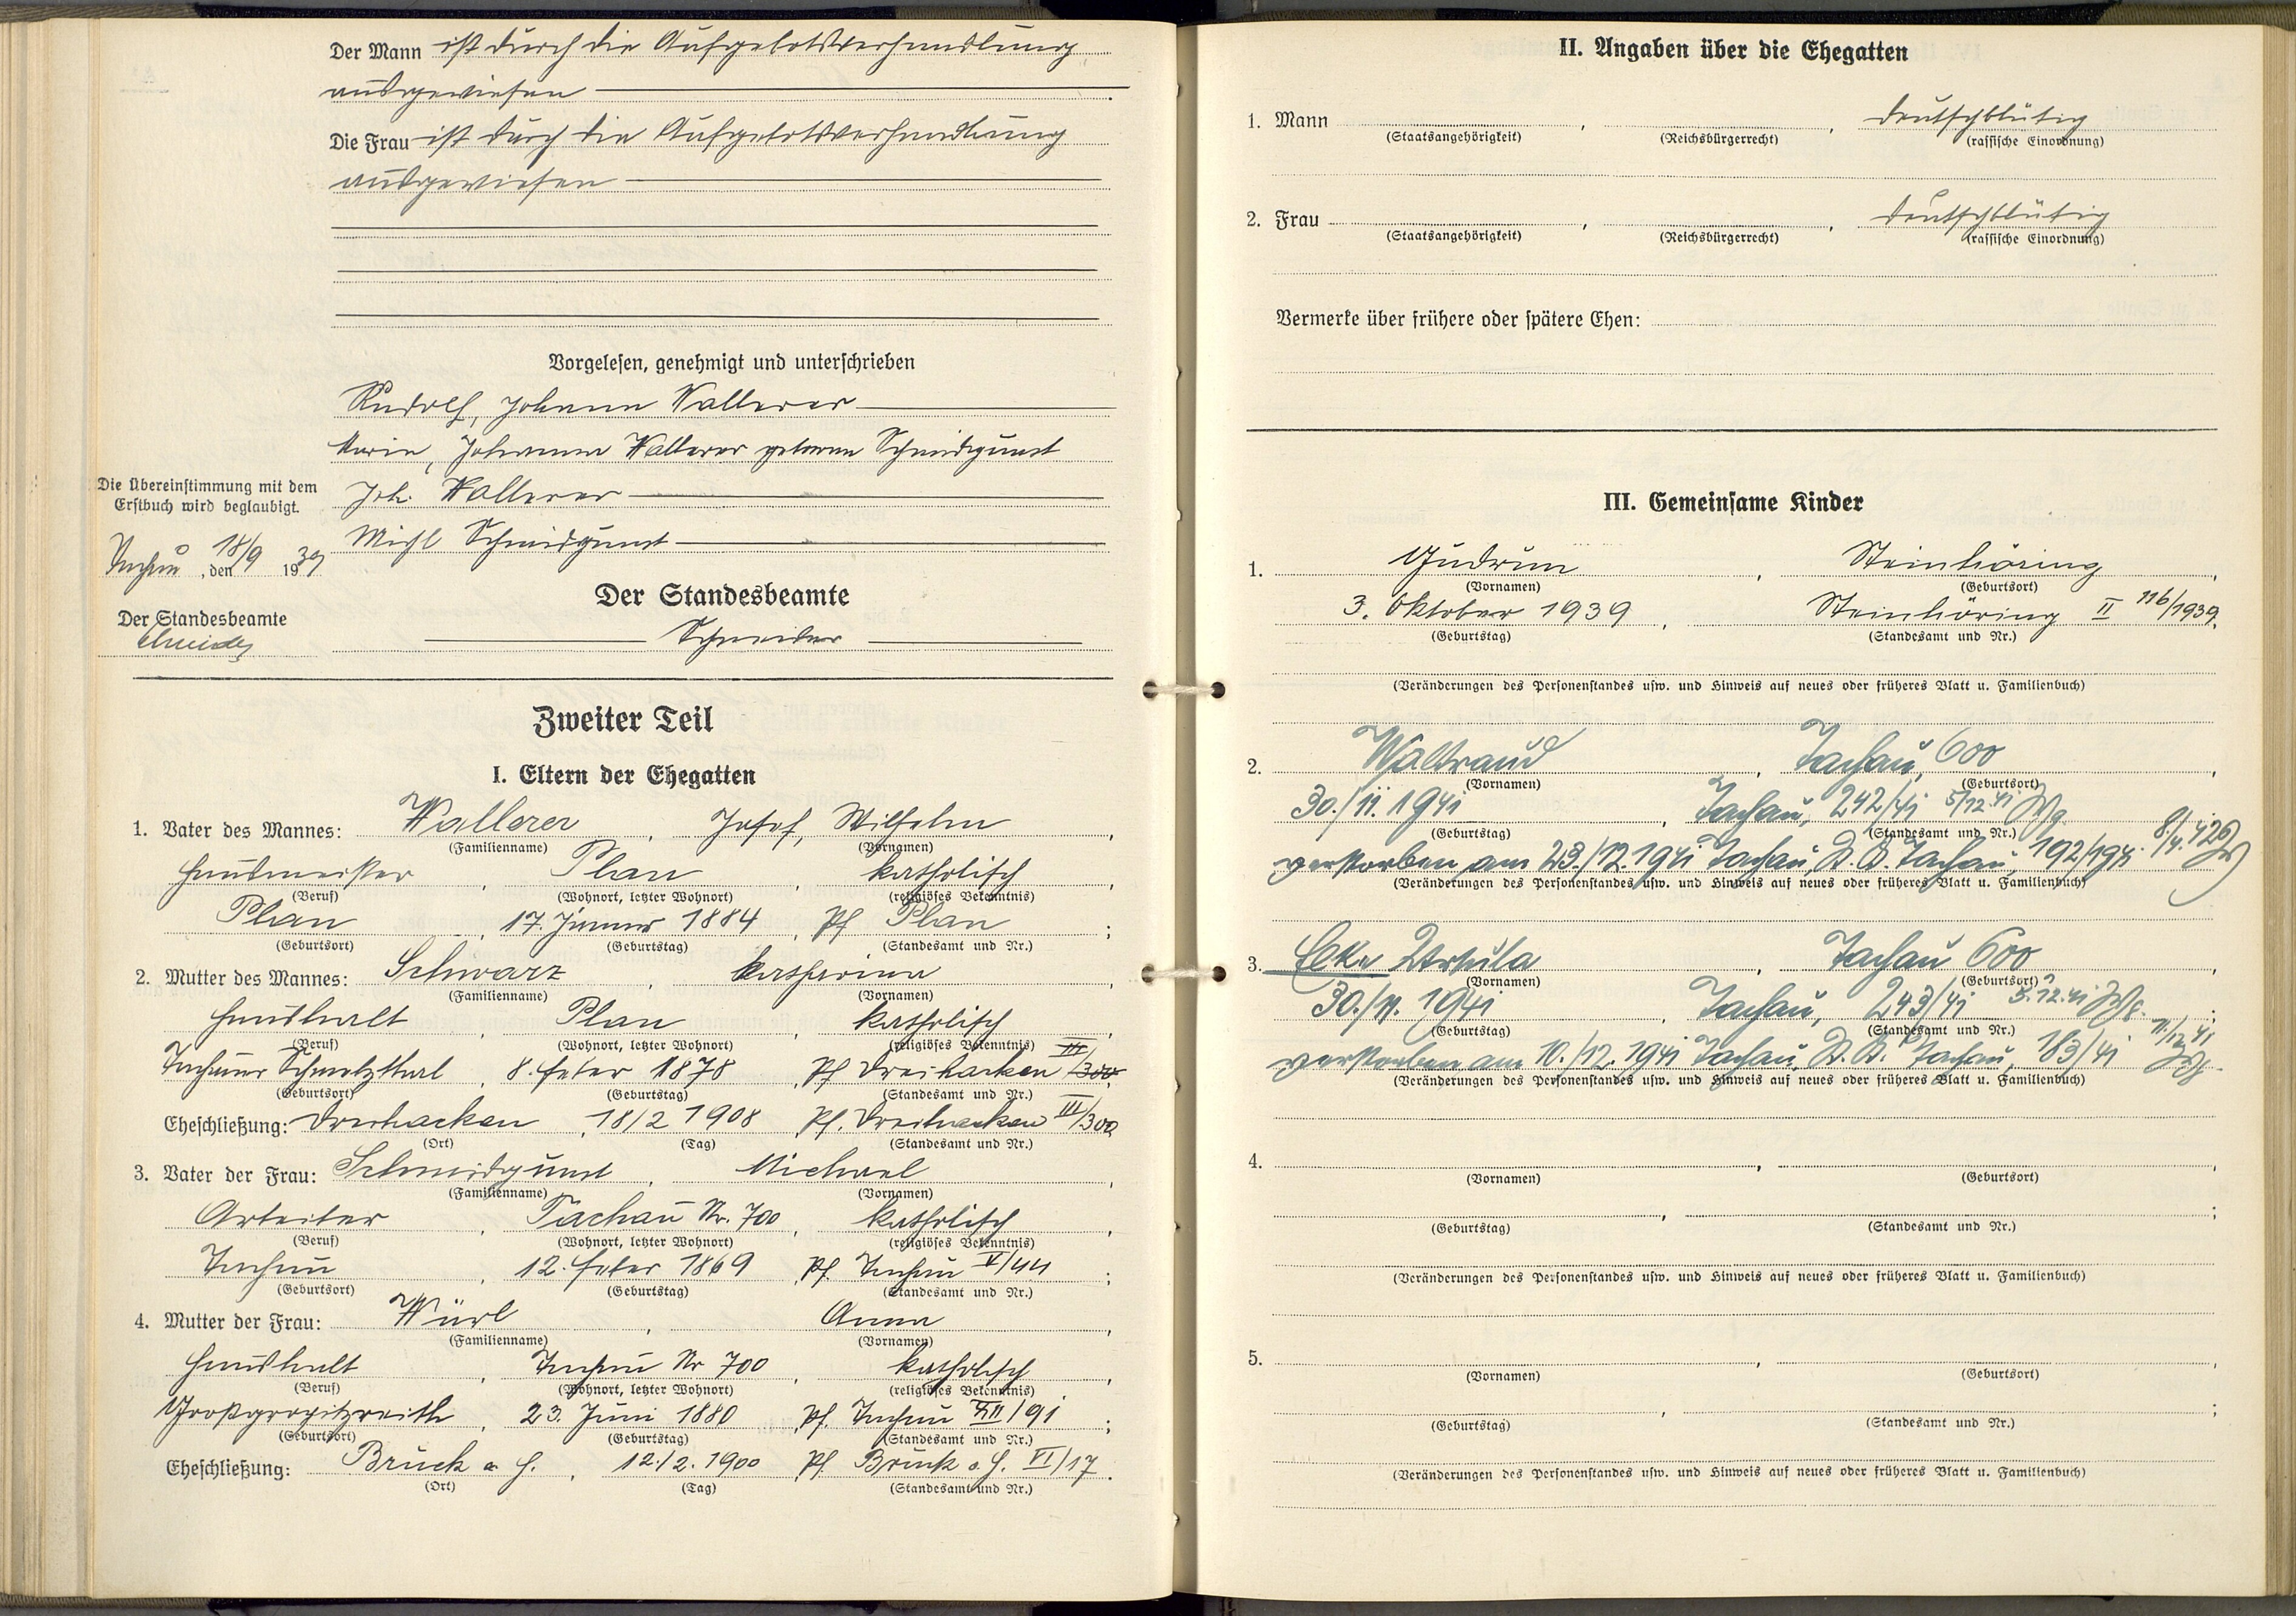 Der Mann ist durch die Aufgebotsverhandlung
ausgewiesen
Die Frau ist durch die Aufgebotsverhandlung
ausgewiesen
Vorgelesen, genehmigt und unterschrieben
Rudolf, Johann Wallerer
Maria, Johanna Wallerer geborene Schmidgunst
Joh. Wallerer
Michl Schmidgunst
Die Übereinstimmung mit dem
Erstbuch wird beglaubigt.
Tachau, den 18/9 1939
Der Standesbeamte
Der Standesbeamte
Schneider
Zweiter Teil
I. Eltern der Ehegatten
1. Vater des Mannes: Wallerer, Josef, Wilhelm,
(Familienname) (Vornamen)
Hausmeister, Plan, katholisch,
(Beruf) (Wohnort, letzter Wohnort) (religiöses Bekenntnis)
Plan, 17. Jänner 1884, Pf Plan;
(Geburtsort) (Geburtstag) (Standesamt und Nr.)
2. Mutter des Mannes: Schwarz, Katharina,
(Familienname) (Vornamen)
Haushalt, Plan, katholisch,
(Beruf) (Wohnort, letzter Wohnort) (religiöses Bekenntnis)
Tachauer Schmelzthal, 8. Feber 1878, Pf Dreihacken III/300
(Geburtsort) (Geburtstag) (Standesamt und Nr.)
Eheschließung: Dreihacken, 18/2 1908, Pf. Dreihacken III/300
(Ort) (Tag) (Standesamt und Nr.)
3. Vater der Frau: Schmidgunst, Michael,
(Familienname) (Vornamen)
Arbeiter, Tachau Nr. 700, katholisch,
(Beruf) (Wohnort, letzter Wohnort) (religiöses Bekenntnis)
Tachau, 12. Feber 1869, Pf. Tachau V/44;
(Geburtsort) (Geburtstag) (Standesamt und Nr.)
4. Mutter der Frau: Würl, Anna,
(Familienname) (Vornamen)
Haushalt, Tachau Nr 700, katholisch,
(Beruf) (Wohnort, letzter Wohnort) (religiöses Bekenntnis)
Großgropitzreith, 23. Juni 1880, Pf. Tachau /91;
(Geburtsort) (Geburtstag) (Standesamt und Nr.)
Eheschließung: Bruck a H., 12./2. 1900 Pf. Bruck a H. VI/17.
(Ort) (Tag) (Standesamt und Nr.)
II. Angaben über die Ehegatten
1. Mann, , deutschblütig
(Staatsangehörigkeit) (Reichsbürgerrecht) (rassische Einordnung)
2. Frau, , deutschblütig
(Staatsangehörigkeit) (Reichsbürgerrecht) (rassische Einordnung)
Vermerke über frühere oder spätere Ehen:
III. Gemeinsame Kinder
1. Gudrun, Steinhöring,
(Vornamen) (Geburtsort)
3. Oktober 1939, Steinhöring II 116/1939.
(Geburtstag) (Standesamt und Nr.)
(Veränderungen des Personenstandes usw. und Hinweis auf neues oder früheres Blatt u. Familienbuch)
2. Waltraud, Tachau, 600,
(Vornamen) (Geburtsort)
30./11. 1941, Tachau, 242/41 5/12.41
(Geburtstag) (Standesamt und Nr.)
verstorben am 23./12.1941 Tachau, St. A. Tachau, 192/1941
(Veränderungen des Personenstandes usw. und Hinweis auf neues oder früheres Blatt u. Familienbuch)
3. Elke Ursula, Tachau 600,
(Vornamen) (Geburtsort)
30./11. 1941, Tachau, 243/41 5.12.41
(Geburtstag) (Standesamt und Nr.)
verstorben am 10./12.1941 Tachau, St. A. Tachau, 183/41 11/12 41
(Veränderungen des Personenstandes usw. und Hinweis auf neues oder früheres Blatt u. Familienbuch)
4. , ,
(Vornamen) (Geburtsort)
, ;
(Geburtstag) (Standesamt und Nr.)
(Veränderungen des Personenstandes usw. und Hinweis auf neues oder früheres Blatt u. Familienbuch)
5. , ,
(Vornamen) (Geburtsort)
, ;
(Geburtstag) (Standesamt und Nr.)
(Veränderungen des Personenstandes usw. und Hinweis auf neues oder früheres Blatt u. Familienbuch)